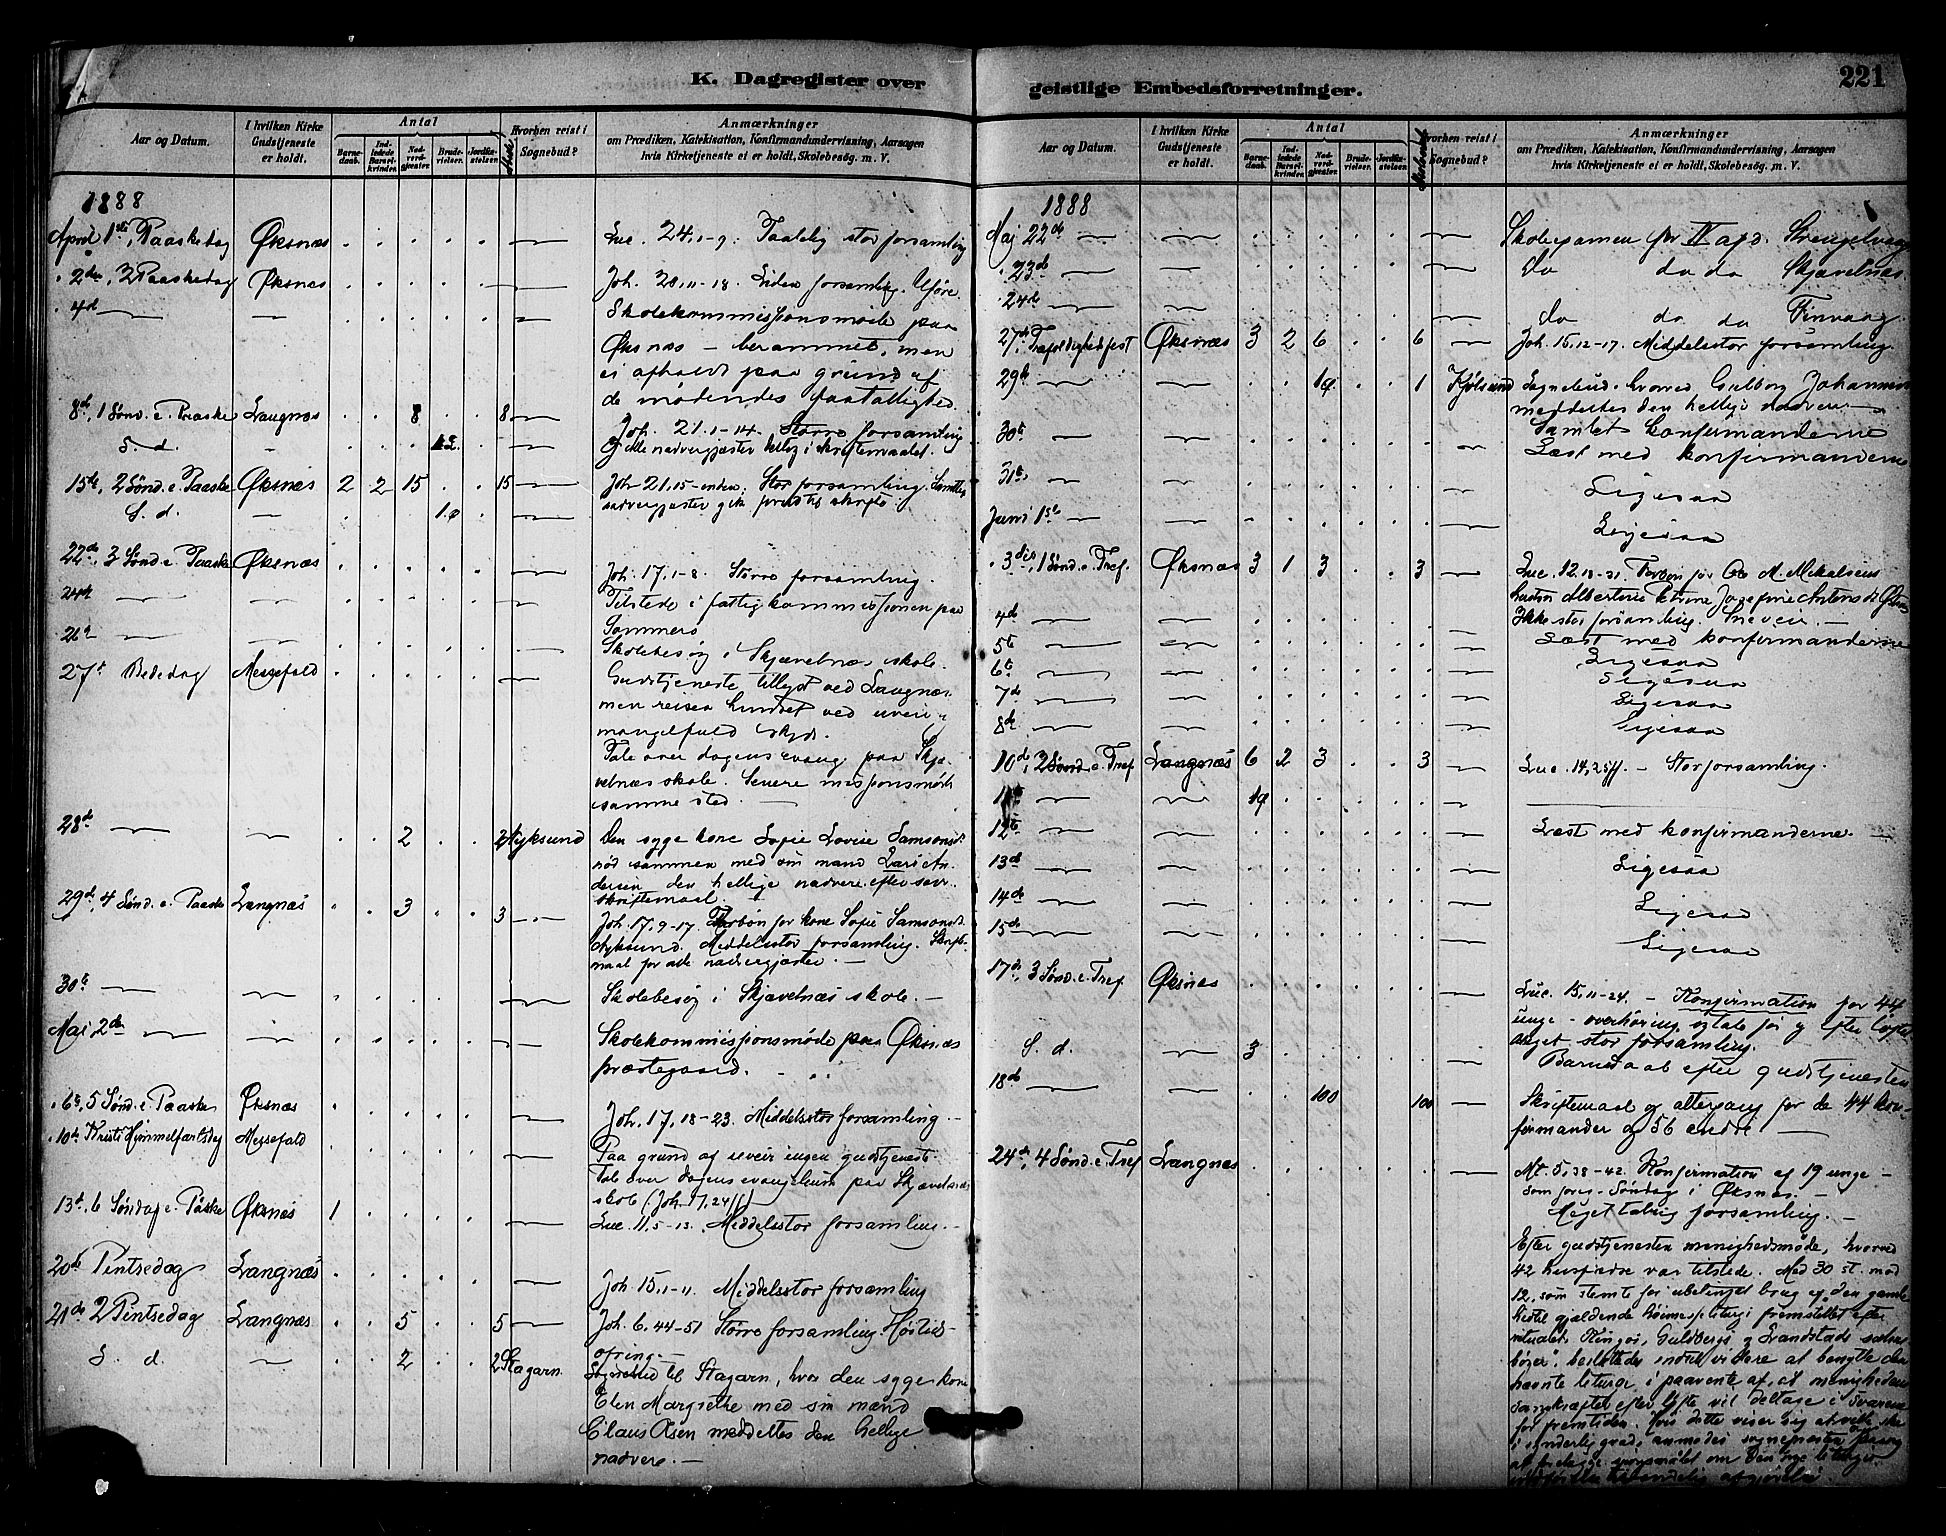 K. Dagregister over
Aar og Datum.
I hvilken Kirke Gudstjeneste er holdt.
Antal
Barnedaab.
Indledede Barselkvinder.
Nadverdgjester.
Brudevielser.
Jordfæstelser.
Hvorhen reist i Sognebud?
Anmærkninger
om Prædiken, Katekisation, Konfirmandundervisning, Aarsagen
hvis Kirketjeneste ei er holdt, Skolebesøg. m. V.
1888
April 1ste, Paaskedag Øksnæs Luc. 24,1-9. Taalelig stor forsamling
2den, 2 Paaskedag Øksnæs Joh. 20,11-18. Liden forsamling. Uføre.
4d Skolekommissionsmøde paa
Øksnæs — berammet, men
ei afholdt paa grund af
de mødendes faatallighed.
8de, 1 Sønd. e. Paaske Langnæs 8 8 Joh. 21,1-14. Større forsamling
S. d.
15de, 2 Sønd. e. Paaske Øksnæs 2 2 15 15 Joh. 21,15-enden. Stor forsamling. Samtlige
S. d. nadvergjester gik skrifte
22de, 3 Sønd. e. Paaske Øksnæs Joh. 17,1-8. Større forsamling.
24de Tilstede i fattigkommissionen paa
Sommerø
26de Skolebesøg i Skjævelnæs skole.
27de Bededag Messefald Gudstjeneste tillyst ved Langnæs
men reisen hindret ved uveir
mangelfuld skyds.
Tale over dagens evang. paa Skjævelnæs
skole. Senere missionsmøde
samme sted.
28de 2 2 Nyksund Den syge kone Sofie Lovise Samsonsd.
nød sammen med sin mand Lars Andersen
den hellige nadvere efter
skriftemaal.
29de, 4 Sønd. e. Paaske Langnæs 3 3 Joh. 17,9-17. Forbøn for kone Sofie Samsonsd.
Nyksund. Middelsstor forsamling. Skriftemaal
for alle nadvergjester.
30te Skolebesøg i Skjævelnæs skole.
Mai 2den Skolekommissionsmøde paa Øksnæs
præstegaard.
6te, 5 Sønd. e. Paaske Øksnæs Joh. 17,18-23. Middelsstor forsamling
10de Kristi Himmelfartsdag Messefald Paa grund af uveir ingen gudstjeneste.
Tale over dagens evangelium paa Skjævelnæs
skole (Joh. 17,24ff)
13de, 6 Søndag e. Påske Øksnæs 1 Luc. 11,5-13. Middelsstor forsamling.
20de Pintsedag Langnæs Joh. 15,1-11. Middelsstor forsamling
21de 2 Pintsedag Langnæs 5 5 Joh. 6,44-51 Større forsamling. Høstidofring.
S. d. 2 2 Stagarn. Sognebud til Stagarn, hvor den syge kone
Elen Margrethe med sin mand
Claus Olsen meddeltes den hellige
nadvere.
geistlige Embedsforretninger.
221
Aar og Datum.
I hvilken Kirke Gudstjeneste er holdt.
Antal
Barnedaab.
Indledede Barselkvinder.
Nadverdgjester.
Brudevielser.
Jordfæstelser.
Hvorhen reist i Sognebud?
Anmærkninger
om Prædiken, Katekisation, Konfirmandundervisning, Aarsagen
hvis Kirketjeneste ei er holdt, Skolebesøg, m. V.
1888
Maj 22de Skoleexamen for Strengelvaag
23de do do do Skjævelnæs.
24de do do do Finvaag.
27de, Trefoldighedsfest Øksnæs 3 2 6 6 Joh. 15,12-17. Middelsstor forsamling.
29de 1 Kjølsund Sognebud hvorved Gulborg Johannesen
meddeltes den hellige nadvere
30te Samlet konfirmanderne
Læst med konfirmanderne
31te Ligesaa
Juni 1ste Ligesaa
3die, 1 Sønd. e. Tref. Øksnæs 3 1 3 3 Luc. 12,13-21. Forbøn for M. Mikalsens
hustru Albertine Petrine Josefine
Ikke stor forsamling.
4de Læst med konfirmanderne
5te Ligesaa
6te Ligesaa
7de Ligesaa
8de Ligesaa
10de, 2 Sønd. e. Tref. Langnæs 6 2 3 3 Luc. 14,25ff. — Stor forsamling.
12te Læst med konfirmanderne.
13de Ligesaa
14de Ligesaa
15de Ligesaa
17de, 3 Sønd. e. Tref. Øksnæs Luc. 15,11-24. — Konfirmation for 44
unge — overhøring, tale før og efter løftet.
Meget stor forsamling.
S. d. 3 Barnedaab efter gudstjenesten
18de 100 100 Skriftemaal og altergang for de 44 konfirmander
og 56 andre
24de, 4 Sønd. e. Tref. Langnæs Mt. 5,38-42. Konfirmation af 19 unge —
som forr. Søndag i Øksnæs. —
Meget talrig forsamling. —
Efter gudstjenesten menighedsmøde, hvorved
42 husfædre var tilstede. Med 30 st. mod
12, som stemte for ubetinget brug af „den gamle
hertil gjældende
ritualet, Kingos, Guldbergs og Landstads salmebøger“,
besluttedes indtil videre at benytte den
nævnte liturgi, i paavente af, at menigheden
efter løfte vil deltage i svarene
for fremtiden. Hvis dette viser sig at
i grad, anmodes sognepræsten
at forelægge spørgsmålet om den nye liturgis